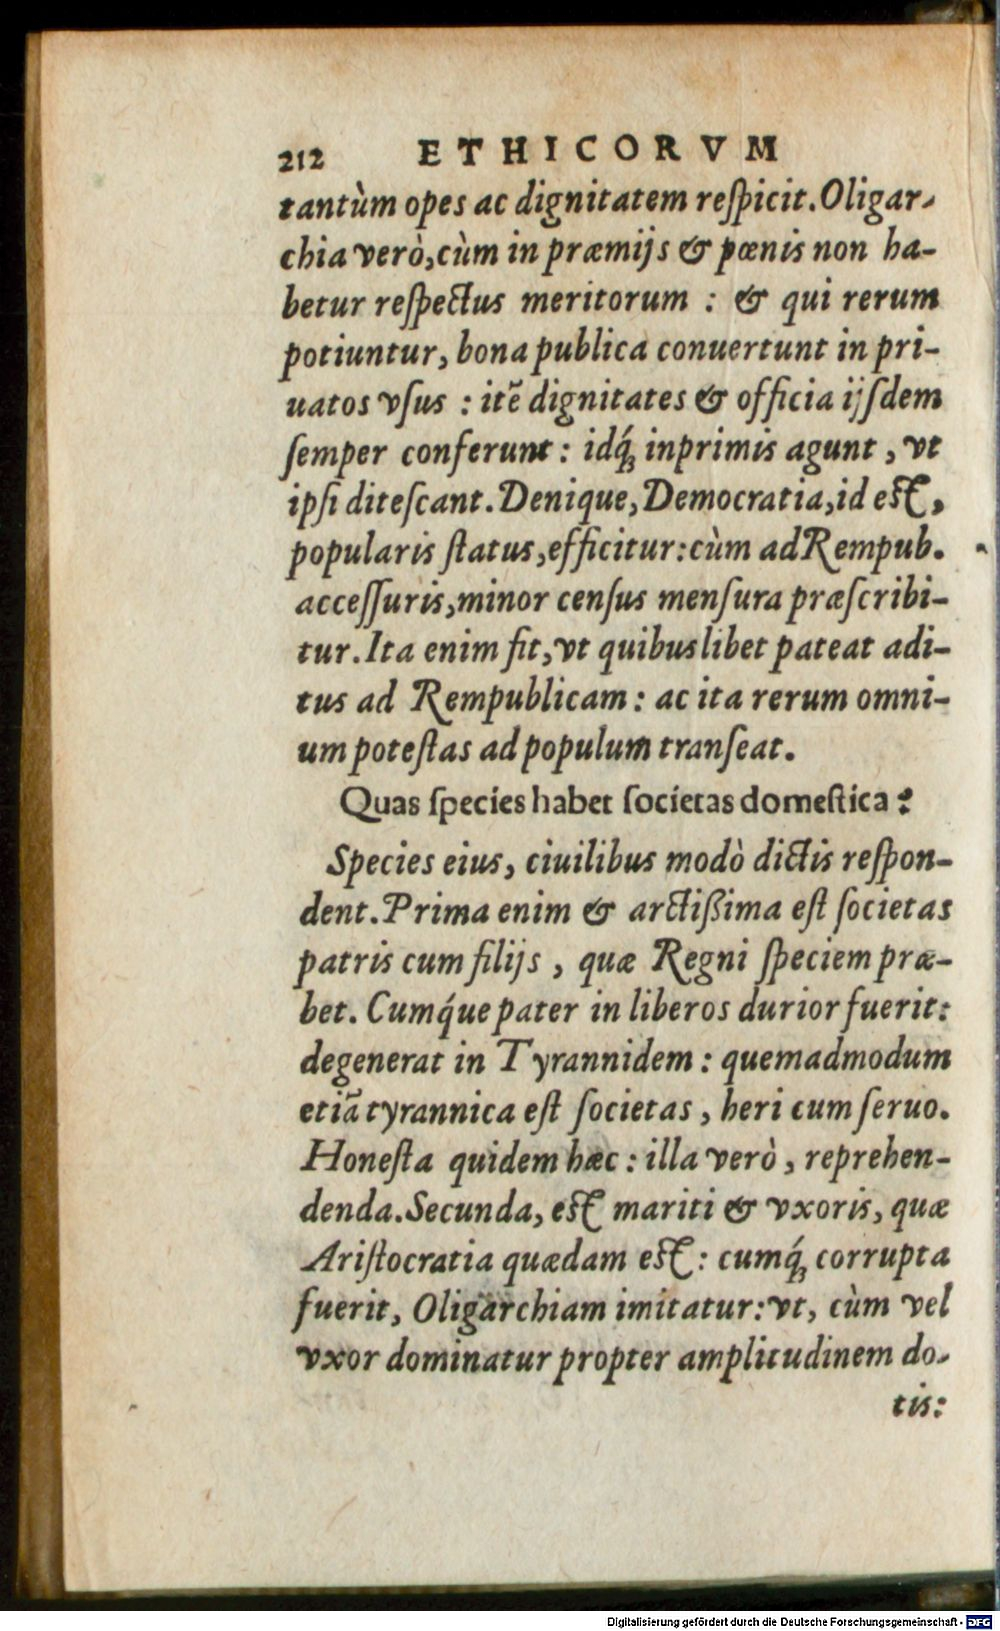 212 ETHICORVM
tantùm opes ac dignitatem reſpicit. Oligar-
chia verò, cùm in præmijs & pœnis non ha-
betur reſpectus meritorum : & qui rerum
potiuntur, bona publica conuertunt in pri-
uatos vſus : itẽ dignitates & officia ijſdem
ſemper conferunt : idq́; inprimis agunt , vt
ipſi diteſcant. Denique, Democratia, id eſt,
popularis ſtatus, efficitur: cùm ad Rempub.
acceſſuris, minor cenſus menſura præſcribi-
tur. Ita enim fit, vt quibuslibet pateat adi-
tus ad Rempublicam : ac ita rerum omni-
um poteſtas ad populum tranſeat.
Quas ſpecies habet ſocietas domeſtica ?
Species eius, ciuilibus modò dictis reſpon-
dent. Prima enim & arctißima eſt ſocietas
patris cum filijs , quæ Regni ſpeciem præ-
bet. Cumq́ue pater in liberos durior fuerit:
degenerat in Tyrannidem : quemadmodum
etiã tyrannica eſt ſocietas , heri cum ſeruo.
Honeſta quidem hæc : illa verò , reprehen-
denda. Secunda, eſt mariti & vxoris, quæ
Ariſtocratia quædam eſt : cumq́; corrupta
fuerit, Oligarchiam imitatur: vt, cùm vel
vxor dominatur propter amplitudinem do-
tis:
Digitalisierung gefördert durch die Deutsche Forschungsgemeinschaft - DFG